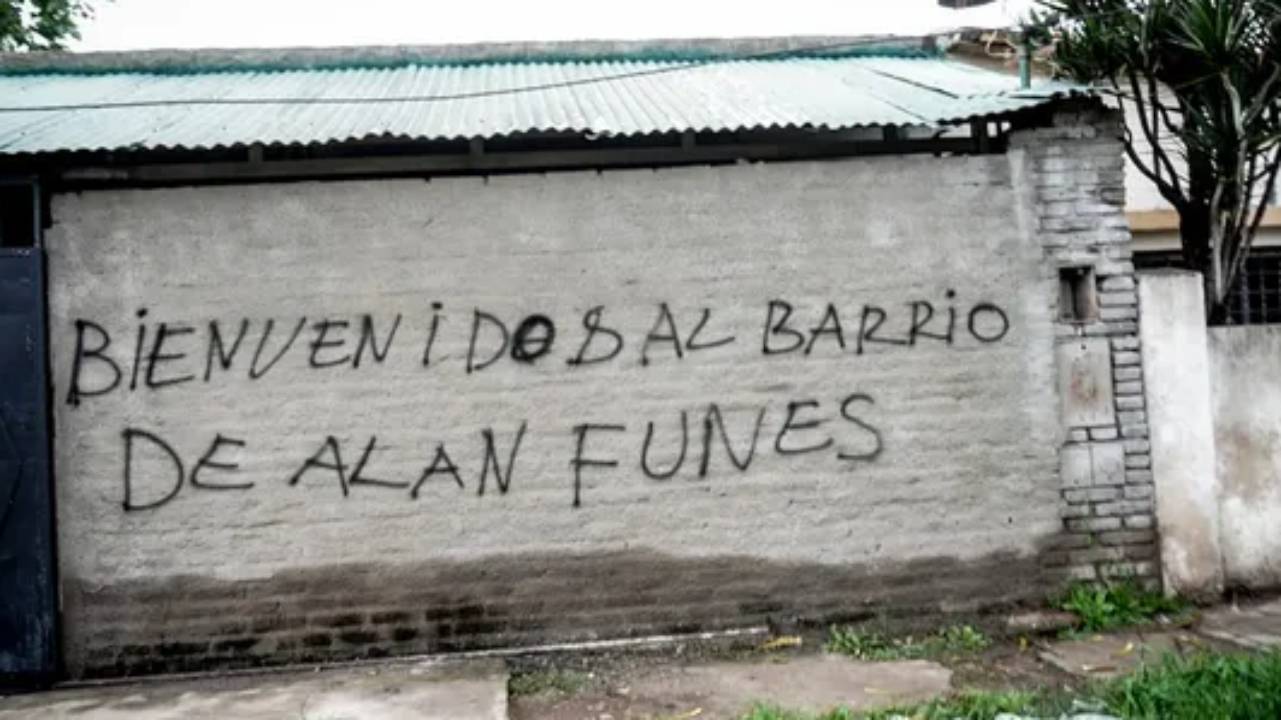 BiENUENiDOS AL BARRiO
DE ALAN FUNES